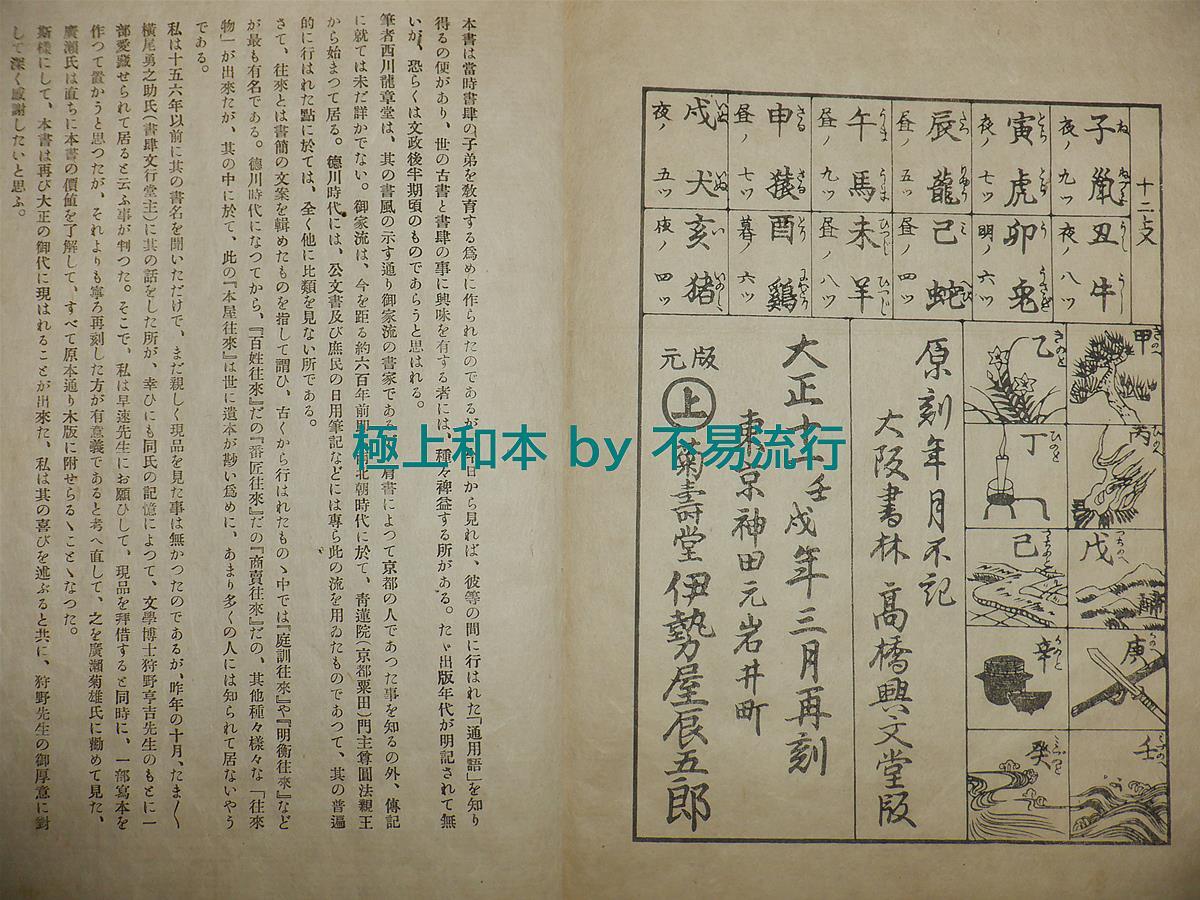 十二支
子 ね 鼡 ねづみ
夜ノ九ツ
丑 うし 牛 うし
夜ノ八ツ
寅 とら 虎 とら
夜ノ七ツ
卯 う 兎 うさぎ
明ノ六ツ
辰 たつ 龍 りゆう
昼ノ五ツ
巳 み 蛇 へび
昼ノ四ツ
午 うま 馬 うま
昼ノ九ツ
未 ひつじ 羊 ひつじ
昼ノ八ツ
申 さる 猿 さる
昼ノ七ツ
酉 とり 鷄 にわとり
暮ノ六ツ
戌 いぬ 犬 いぬ
夜ノ五ツ
亥 い 猪 いのしゝ
夜ノ四ツ
甲 きのへ
乙 きのと
丙 ひのへ
丁 ひのと
戊 つちのへ
己 つちのと
庚 かのへ
辛 かのと
壬 みづのへ
癸 みづのと
原刻年月不記
大阪書林 高橋興文堂版
大正十一壬戌年三月再刻
東京神田元岩井町
版元 上 菊壽堂 伊勢屋辰五郎
本書は當時書肆の子弟を教育する爲めに作られたのであるが、今日から見れば、彼等の間に行はれた「通用語」を知り
得るの便があり、世の古書と書肆の事に興味を有する者には、種々裨益する所がある。たゞ出版年代が明記されて無
いが、恐らくは文政後半期頃のものであらうと思はれる。
筆者西川龍章堂は、其の書風の示す通り御家流の書家である。肩書によつて京都の人であつた事を知るの外、傳記
に就ては未だ詳かでない。御家流は、今を距る約六百年前即ち南北朝時代に於て、靑蓮院(京都粟田)門主尊圓法親王
から始まつて居る。德川時代には、公文書及び庶民の日用筆記などには專ら此の流を用ゐたものであつて、其の普遍
的に行はれた點に於ては、全く他に比類を見ない所である。
さて、往來とは書簡の文案を輯めたものを指して謂ひ、古くから行はれたものゝ中では『庭訓往來』や『明衡往來』など
が最も有名である。德川時代になつてから、『百姓往來』だの『番匠往來』だの『商賣往來』だの、其他種々樣々な「往來
物」が出來たが、其の中に於て、此の『本屋往來』は世に遺本が尠い爲めに、あまり多くの人には知られて居ないやう
である。
私は十五六年以前に其の書名を聞いただけで、まだ親しく現品を見た事は無かつたのであるが、昨年の十月、たま〱
橫尾勇之助氏(書肆文行堂主)に其の話をした所が、幸ひにも同氏の記憶によつて、文學博士狩野亨吉先生のもとに一
部愛藏せられて居ると云ふ事が判つた。そこで、私は早速先生にお願ひして、現品を拜借すると同時に、一部寫本を
作つて置かうと思つたが、それよりも寧ろ再刻した方が有意義であると考へ直して、之を廣瀬菊雄氏に勸めて見た、
廣瀬氏は直ちに本書の價値を了解して、すべて原本通り木版に附せらるゝことゝなつた。
斯樣にして、本書は再び大正の御代に現はれることが出來た、私は其の喜びを述ぶると共に、狩野先生の御厚意に對
して深く感謝したいと思ふ。
極上和本 by 不易流行